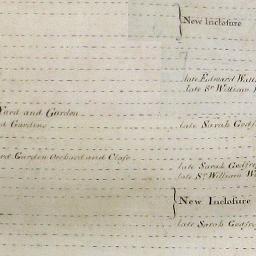 New Inclosure
late Edward
late Sr. William
Yard and Garden
Garding late Sarah
Garden Orchard and Close
late Sarah
late Sr. William
New Inclosure
late Sarah